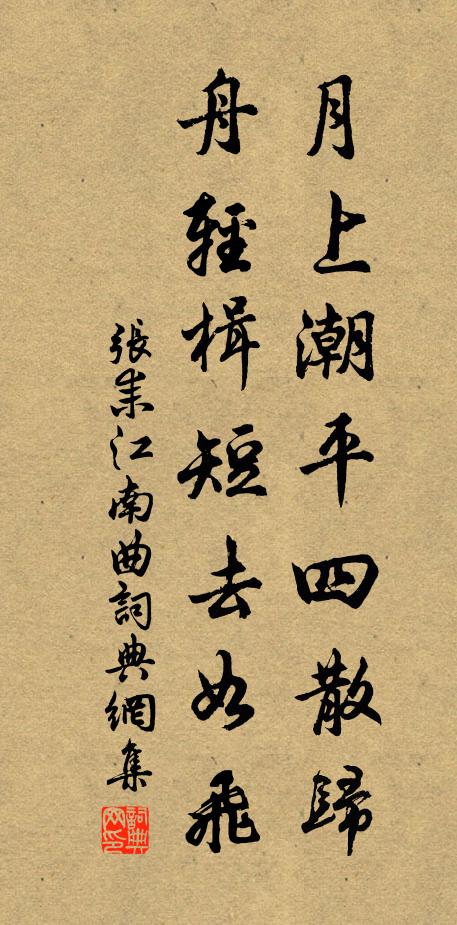 月上潮平四散歸
舟輕楫短去如飛
張耒江南曲詞典網集
詞典网印